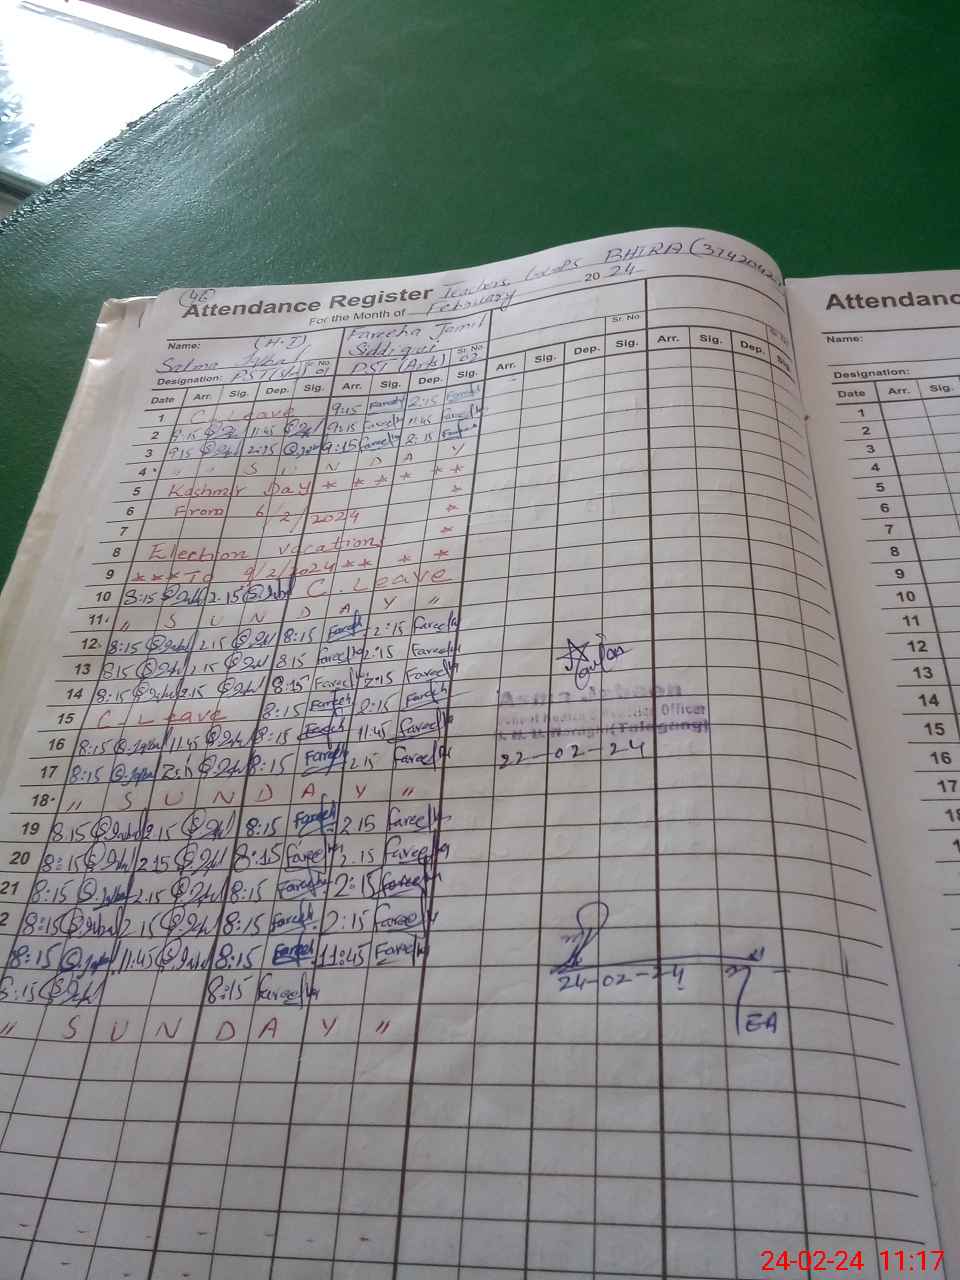 (46)
Attendance Register Teachers GGPS BHIRA (3742042
For the Month of February 2024
Name: Salma Iqbal (H.I) Fareeha Jamil Siddiqui Sr. No. Sr. No.
Designation: PST (Sci) Sr. No. 01 PST (Arts) Sr. No. 02
Date Arr. Sig. Dep. Sig. Arr. Sig. Dep. Sig. Arr. Sig. Dep. Sig. Arr. Sig. Dep. Sig.
1 C. Leave 9:15 Fareeha 2:15 Fareeha
2 9:15 S.Iqbal 11:45 S.Iqbal 9:15 Fareeha 11:45 Fareeha
3 9:15 S.Iqbal 2:15 S.Iqbal 9:15 Fareeha 2:15 Fareeha
4 " " S U N D A Y
5 Kashmir Day * * * * * *
6 From 6/2/2024 *
7 *
8 Election vacation *
9 *** To 9/2/2024 ** * *
10 8:15 S.Iqbal 2.15 S.Iqbal C. Leave
11 " S U N D A Y "
12 8:15 S.Iqbal 2.15 S.Iqbal 8:15 Fareeha 2:15 Fareeha
13 8:15 S.Iqbal 2.15 S.Iqbal 8:15 Fareeha 2:15 Fareeha
14 8:15 S.Iqbal 2.15 S.Iqbal 8:15 Fareeha 2:15 Fareeha
15 C. Leave 8:15 Fareeha 2:15 Fareeha
16 8:15 S.Iqbal 11:45 S.Iqbal 8:15 Fareeha 11:45 Fareeha
17 8:15 S.Iqbal 2:15 S.Iqbal 8:15 Fareeha 2.15 Fareeha
18 " S U N D A Y "
19 8:15 S.Iqbal 2.15 S.Iqbal 8:15 Fareeha 2.15 Fareeha
20 8:15 S.Iqbal 2.15 S.Iqbal 8:15 Fareeha 2.15 Fareeha
21 8:15 S.Iqbal 2.15 S.Iqbal 8:15 Fareeha 2:15 Fareeha
2 8:15 S.Iqbal 2.15 S.Iqbal 8:15 Fareeha 2:15 Fareeha
8:15 S.Iqbal 11:45 S.Iqbal 8:15 Fareeha 11:45 Fareeha
8:15 S.Iqbal 8:15 Fareeha
" S U N D A Y "
Asma Jabeen
School Health & Nutrition Officer
(Talagang)
22-02-24
24-02-24
EA
Attendanc
Name:
Designation:
Date Arr. Sig.
1
2
3
4
5
6
7
8
9
10
11
12
13
14
15
16
17
18
24-02-24 11:17